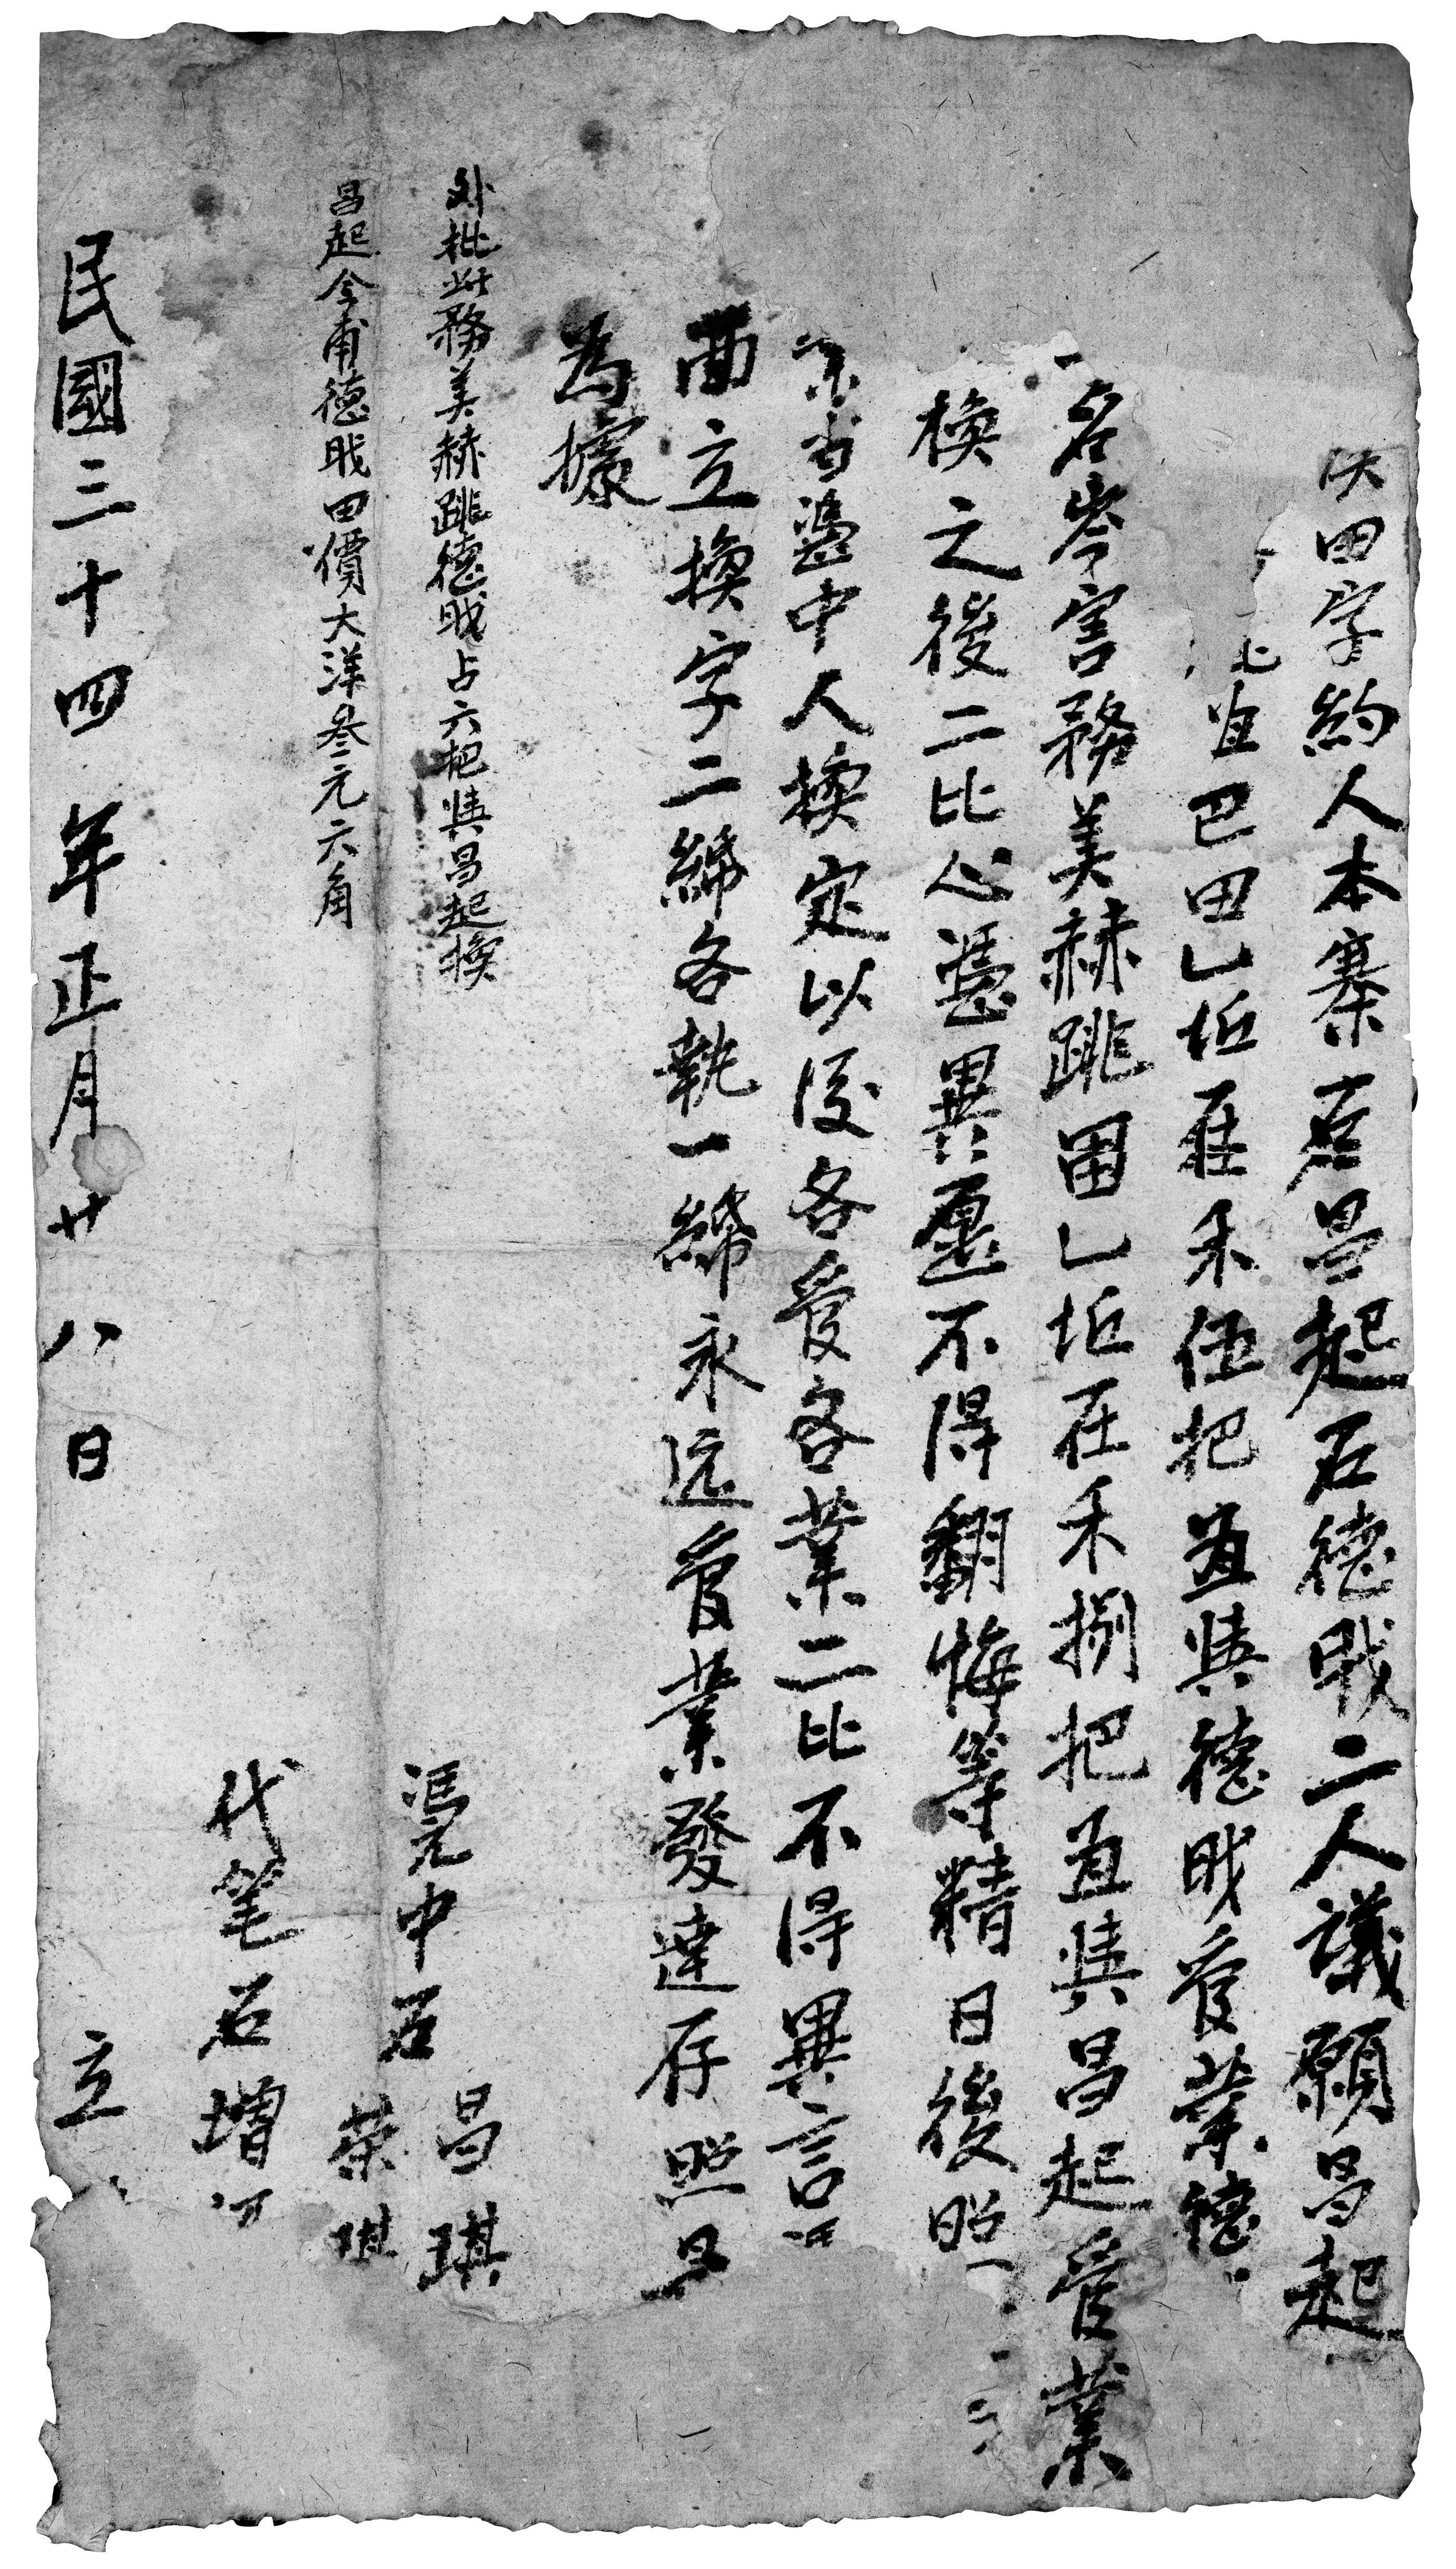 田字約人本寨石昌起石德戝二人議願昌起
田乚坵在禾伍把直與德戝管業德
一名岑害務美赫跳田乚坵在禾捌把直與昌起管業
換之後二比心憑異愿不得翻悔等精日後
當憑中人換定以後各管各業二比不得異言
面立換字二紙各執一紙永远管業發達存照是
為據
外批此務美赫跳德戝占六把與昌起換
昌起今甫德戝田價大洋叁元六角
憑中石昌琪
荣琪
代笔石增
民國三十四年正月廿八日 立